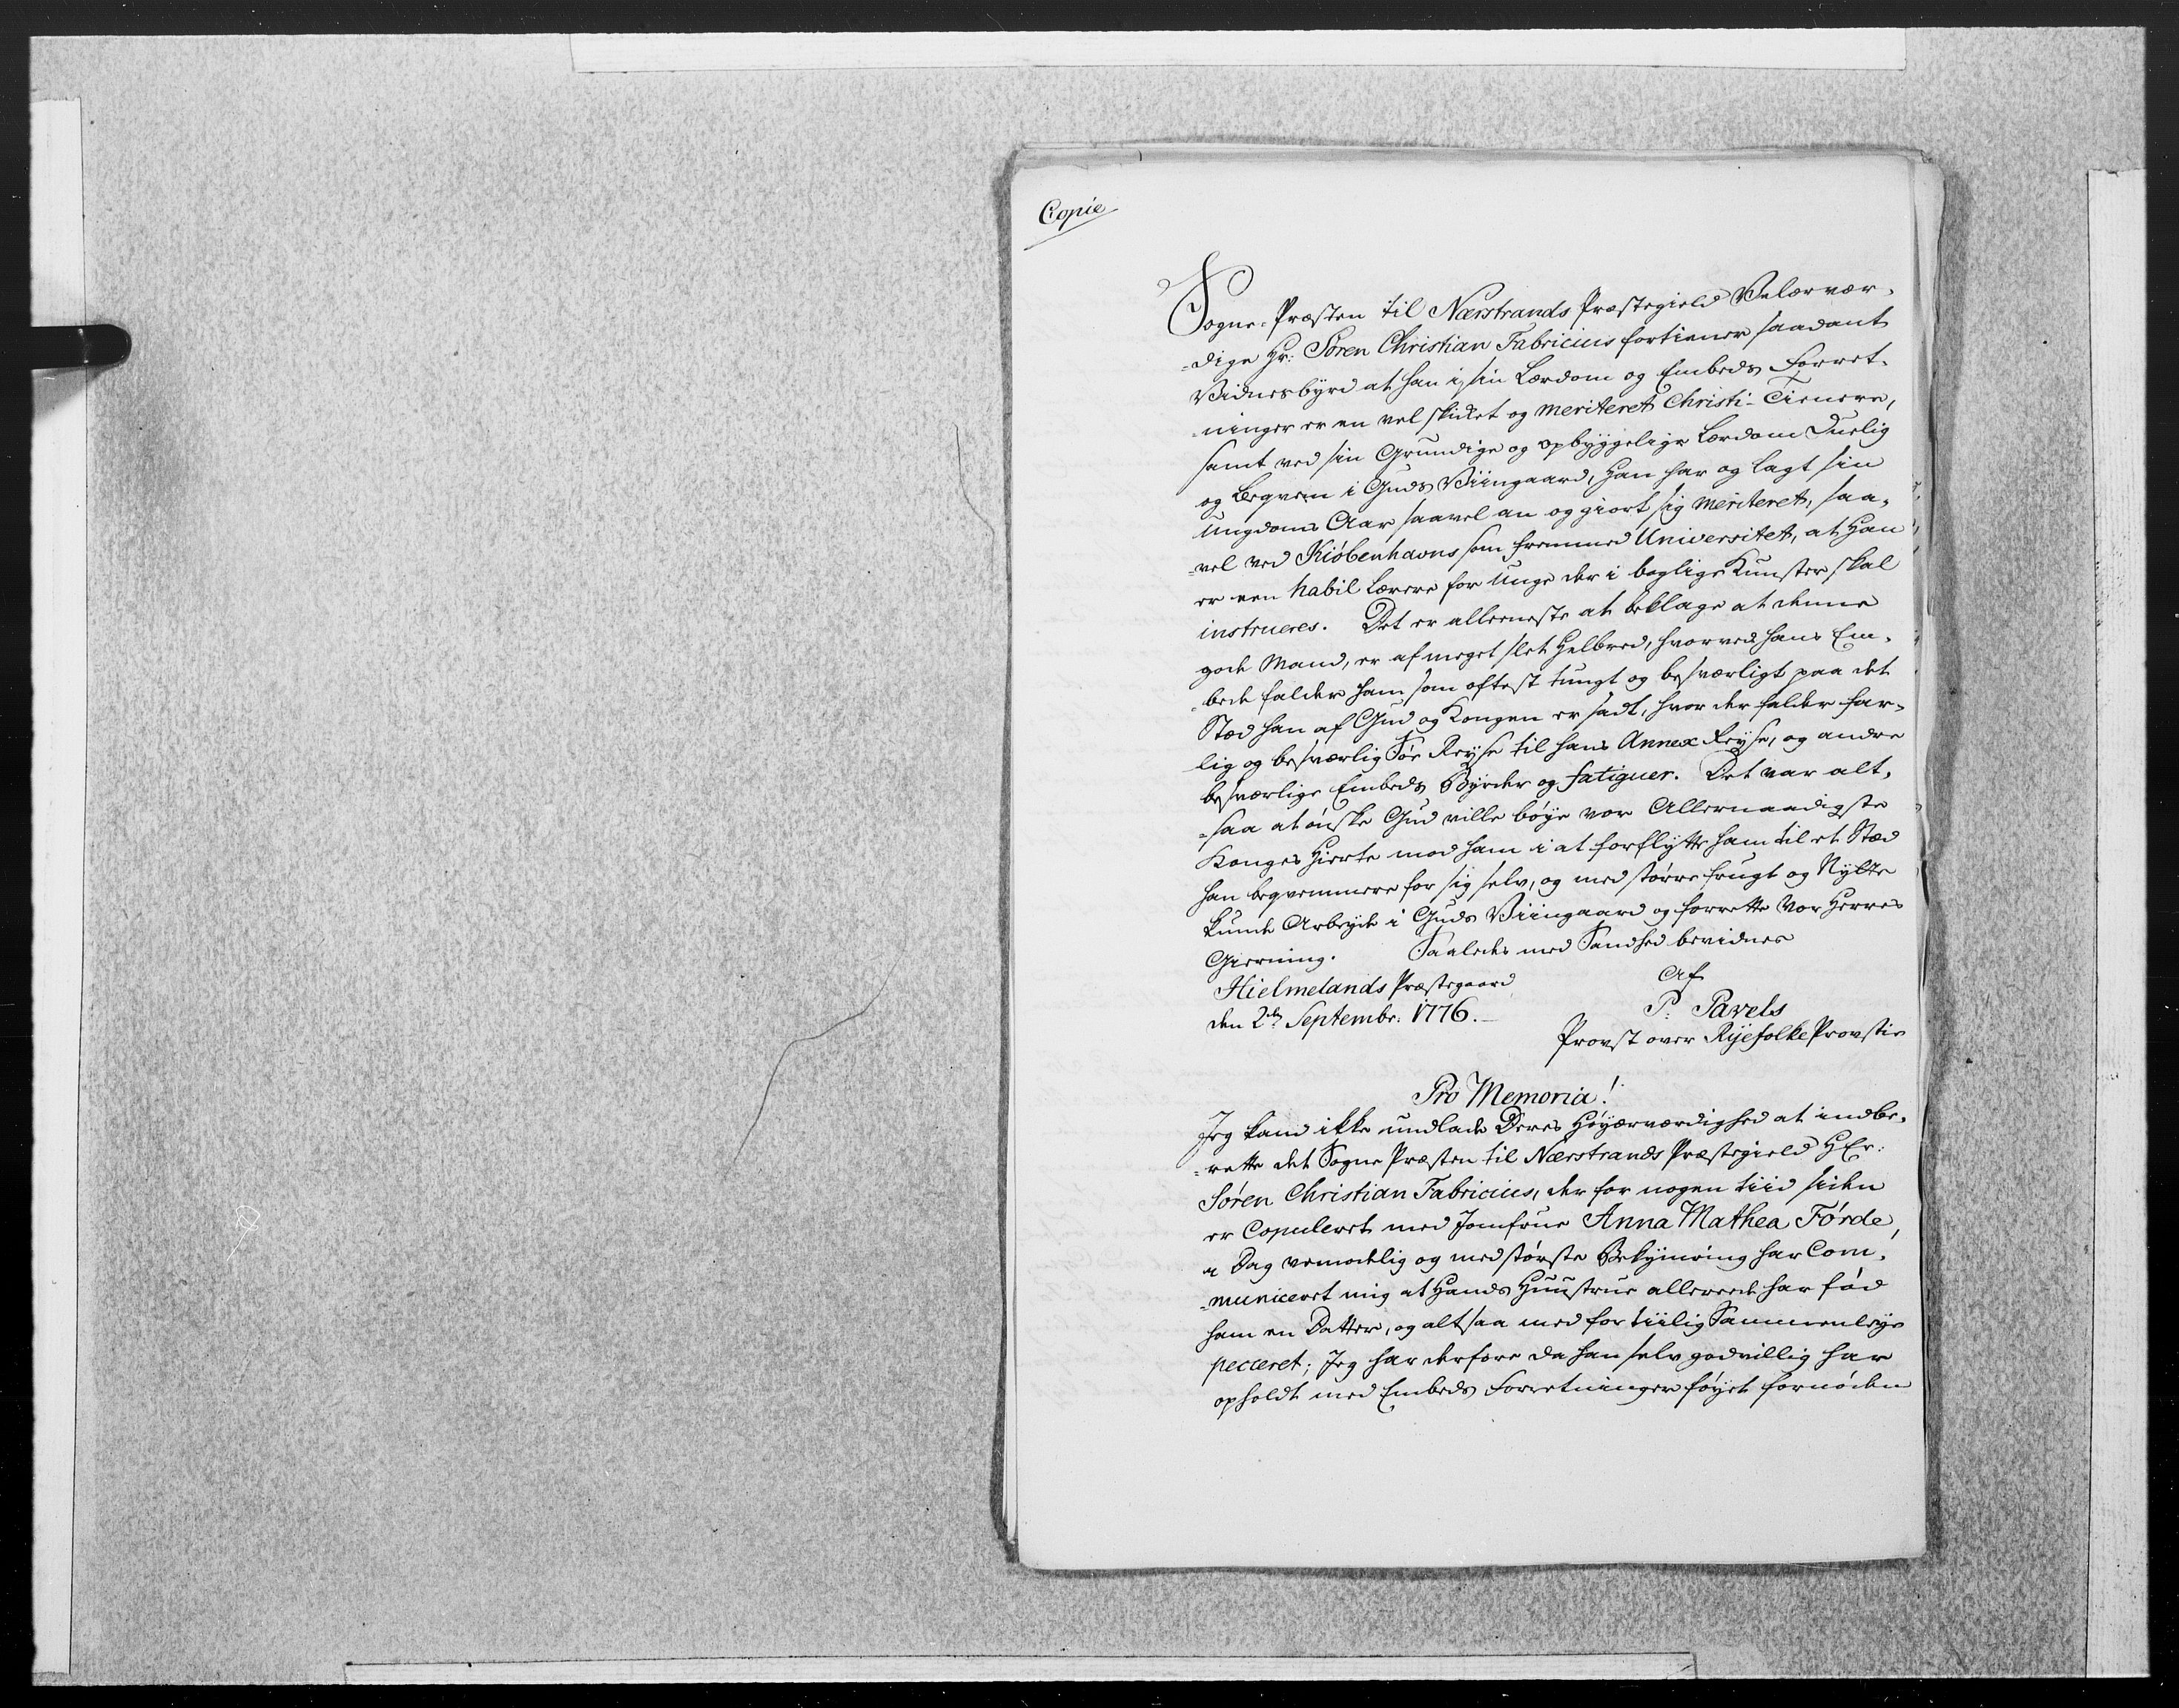 Copie
Sogne-Præsten til Nærstrands Præstegield Velærvær-
-dige Hr: Sören Christian Fabricius fortiener saadant
Vidnesbyrd at han i sin Lærdom og Embeds Forret-
-ninger er en vel skicket og meriteret Christi-Tienere,
samt ved sin Grundige og opbyggelige Lærdom Duelig
og beqvem i Guds Viingaard, Han har og lagt sin
Ungdoms Aar saavel an og giort sig meriteret, saa-
-vel ved Kiöbenhavns som fremmed Universitet, at Han
er een habil Lærere for Unge der i boglige Kunster skal
instrueres. Det er alleeneste at beklage at denne
gode Mand, er af meget slet Helbred, hvorved hans Em-
-bede falder ham som oftest tungt og besværligt paa det
Stæd han af Gud og Kongen er sadt, hvor der falder far-
lig og besværlig Söe Reyse til hans Annex Reyse, og andre
besværlige Embeds Byrder og fatiguer. Det var alt-
-saa at önske Gud ville böye vor Allernaadigste
Konges Hierte mod ham i at forflytte ham til et Stæd
han beqvemmere for sig selv, og med större frugt og Nytte
kunde Arbeyde i Guds Viingaard og forrette Vor Herres
Gierning. Saaledes med Sandhed bevidnes
Hielmelands Præstegaard Af
den 2den Septembr: 1776. P: Pavels
Provst over Ryefolke Provstie
Pro Memoria!
Jeg kand ikke undlade Deres Höyærværdighed at indbe-
-rette det Sogne Præsten til Nærstrands Præstegield HEr:
Sören Christian Fabricius, der for nogen tiid siden
er Copuleret med Jomfrue Anna Mathea Förde,
a Dag vemodelig og med störste Bekymring har Com-
-municeret mig at Hands Huustrue allereede har fód
ham en Datter, og altsaa med for tiilig Sammenleye
pecceret; Jeg har derfore da han selv godvillig har
opholdt med Embeds Forretninger föyet fornöden